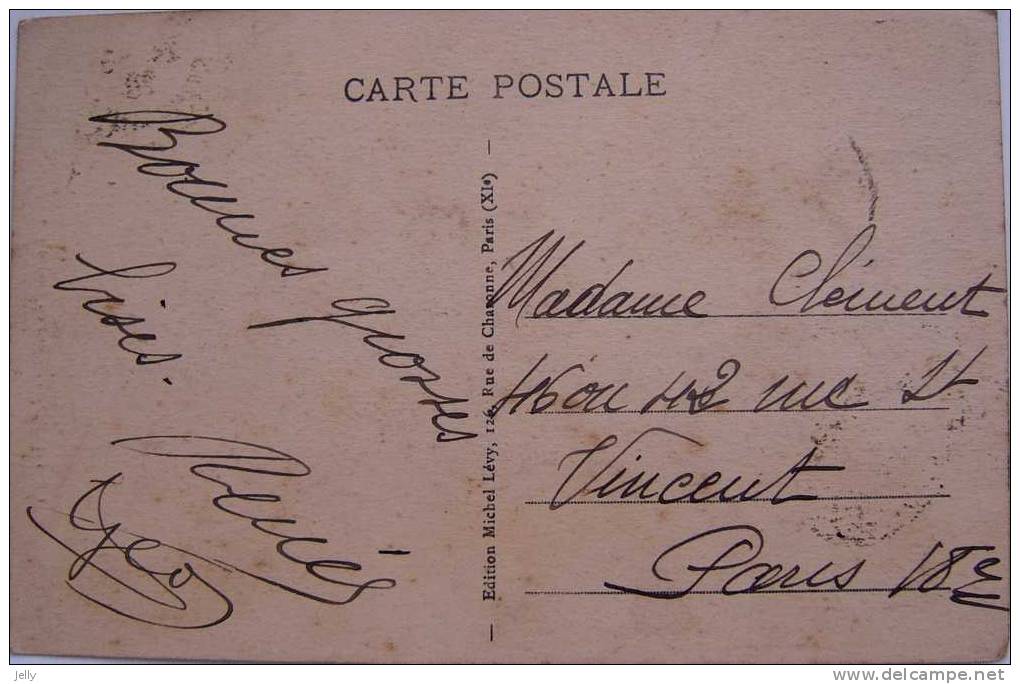 CARTE POSTALE
Bonnes grosses
bises.
Geo
Edition Michel Lévy, 126, Rue de Charonne, Paris (XIe)
Madame Clément
46 ou 42 rue St
Vincent
Paris 18e
jelly
delcampe.net